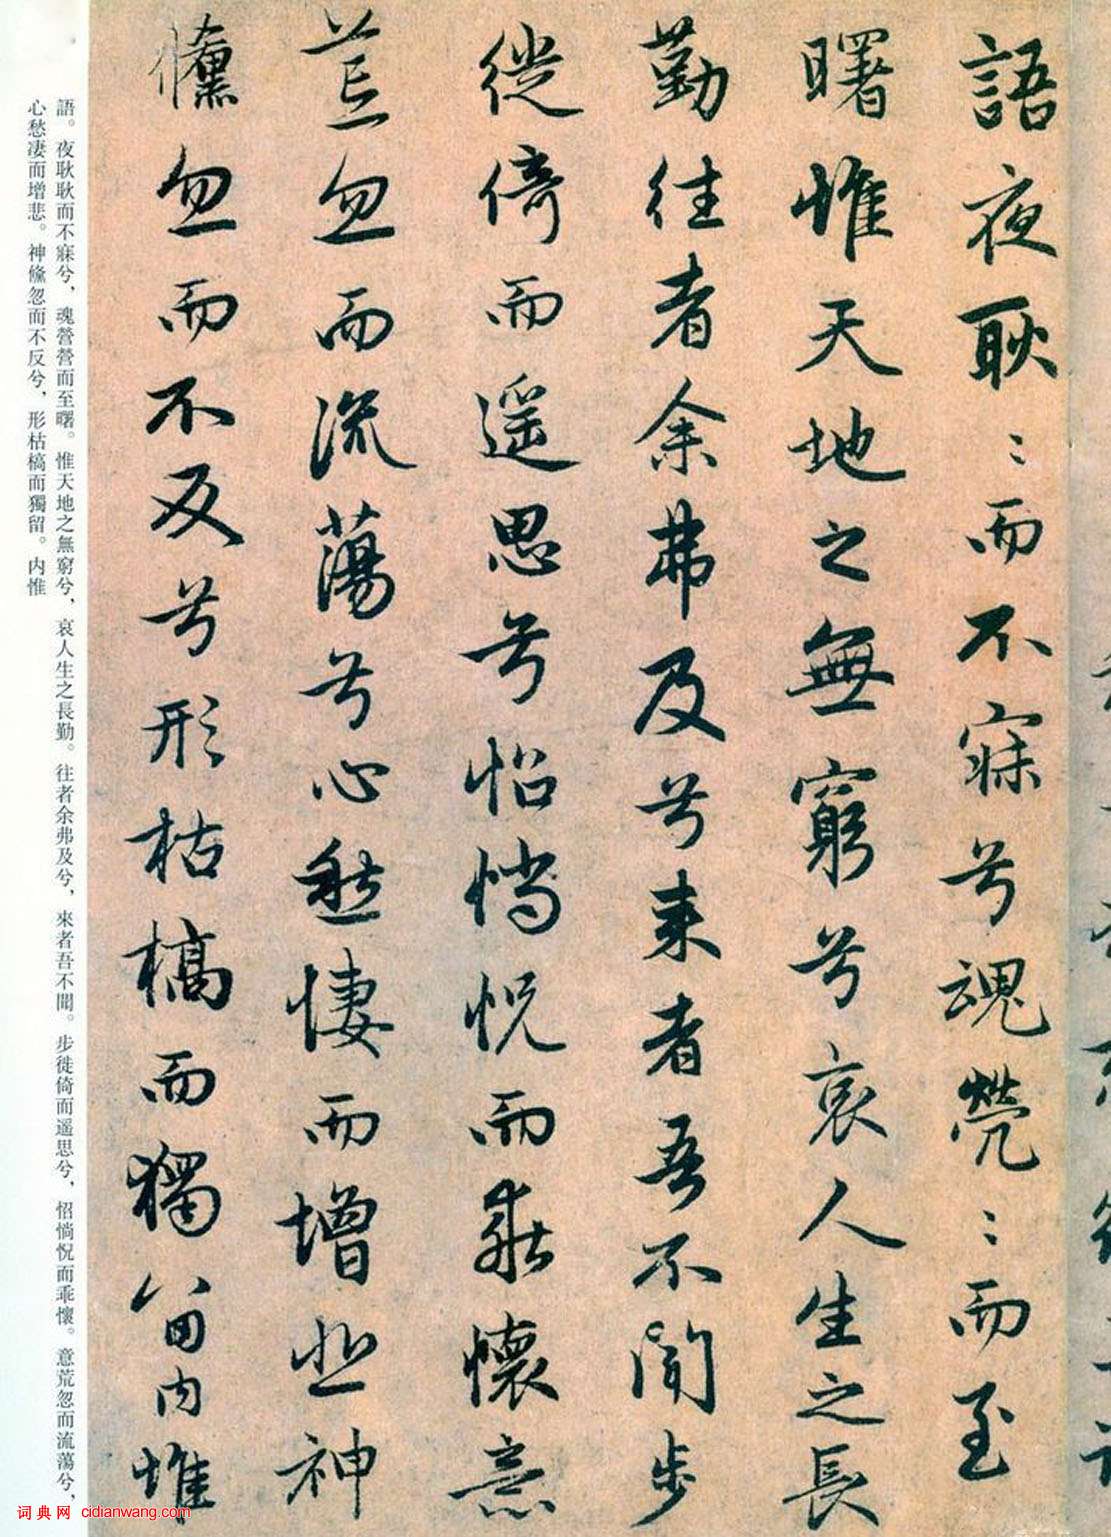 語夜耿〻而不寐兮魂煢〻而至
曙惟天地之無窮兮哀人生之長
勤往者余弗及兮来者吾不聞步
徙倚而遥思兮怊惝怳而乖懷意
荒忽而流蕩兮心愁悽而增悲神
儵忽而不反兮形枯槁而獨留内惟
語。夜耿耿而不寐兮，魂營營而至曙。惟天地之無窮兮，哀人生之長勤。往者余弗及兮，來者吾不聞。步徙倚而遥思兮，怊惝怳而乖懷。意荒忽而流蕩兮，
心愁凄而增悲。神儵忽而不反兮，形枯槁而獨留。内惟
词典网 cidianwang.com